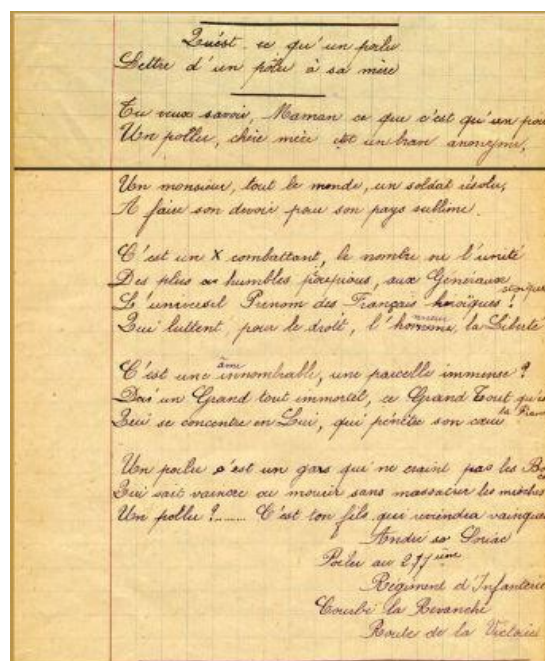 Qu'est-ce qu'un poilu
Lettre d'un poilu à sa mère
Tu veux savoir, Maman ce que c'est qu'un poi
Un poilu, chère mère est un brave anonyme,
Un monsieur, tout le monde, un soldat résolu,
A faire son devoir pour son pays sublime.
C'est un X combattant, le nombre ou l'unité
Des plus humbles pioupious, aux Généraux
L'universel Prenom des Français héroïques !
Qui luttent, pour le droit, l' la Liberté
C'est une âme innombrable, une parcelle immense ?
D'un Grand tout immortel, ce Grand Tout qu'es
Qui se concentre en Lui, qui pénètre son cœur
Un poilu c'est un gars qui ne craint pas les Bo
Qui sait vaincre ou mourir sans massacrer les mioches
Un poilu ?........ C'est ton fils qui reviendra vainque
Poilu au ème
Régiment d'Infanterie
Courbe la Revanche
Route de la Victoire